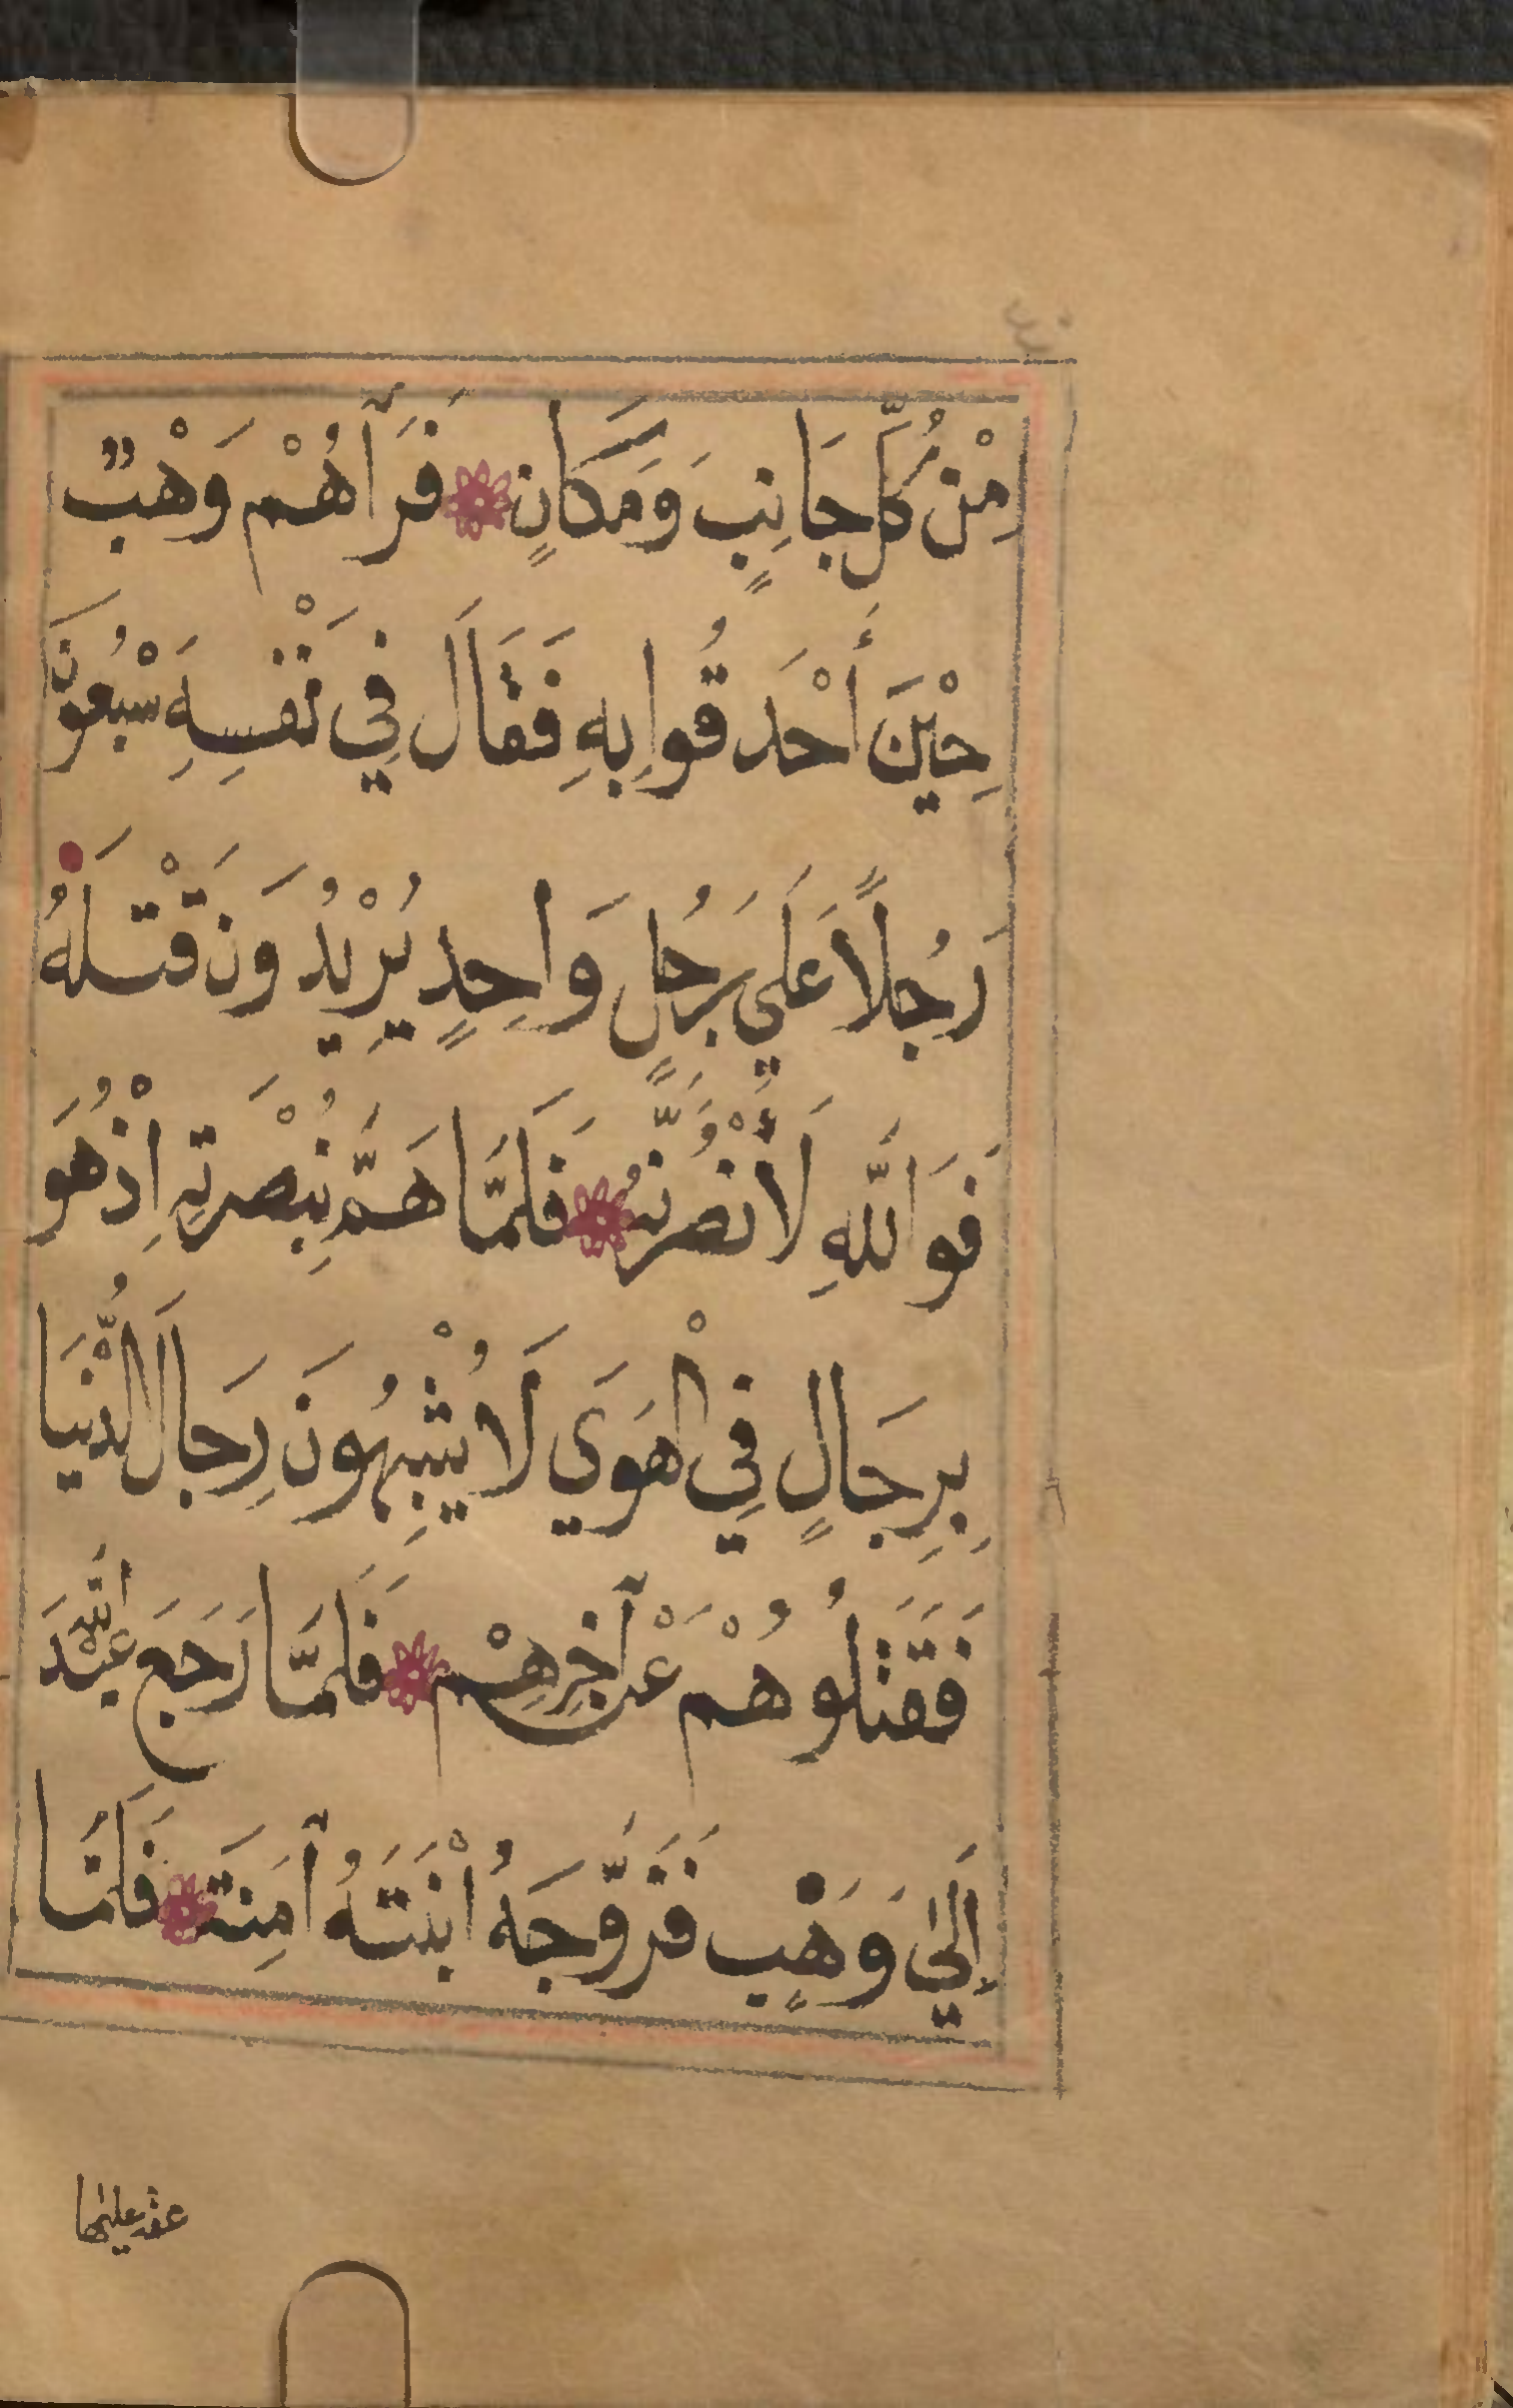 مِنْ كُلِّ جَانِبٍ وَمَكَانٍ فَرَآهُمْ وَهْبٌ
حِيْنَ أَحْدَقُوا بِهِ فَقَالَ فِي نَفْسِهِ سَبْعُونَ
رَجُلًا عَلَي رَجُلٍ وَاحِدٍ يُرِيْدُونَ قَتْلَهُ
فَوَاللَّهِ لَأَنْصُرَنَّهُ فَلَمَّا هَمَّ بِنُصْرَتِهِ اِذْ هُوَ
بِرِجَالٍ فِي الْهَوَي لَا يُشْبِهُونَ رِجَالَ الدُّنْيَا
فَقَتَلُوهُمْ عَنْ آخِرِهِمْ فَلَمَّا رَجَعَ عَبْدُ اللَّهِ
اِلَيٰ وَهْبٍ فَزَوَّجَهُ ابْنَتَهُ آمِنَةَ فَلَمَّا
عقد عليها